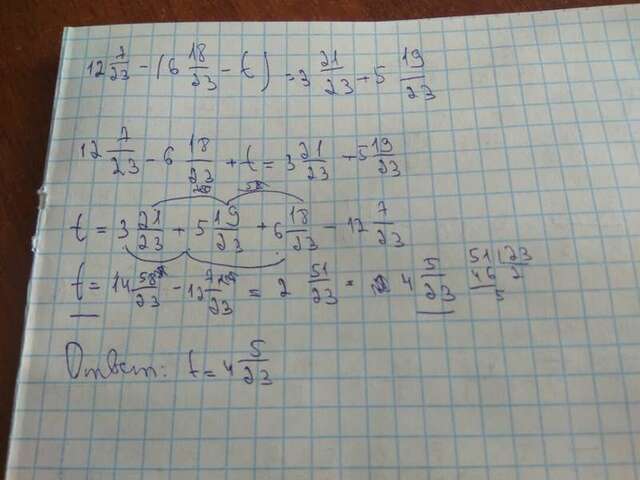 12 7/23 - (6 18/23 - t) = 3 21/23 + 5 19/23
12 7/23 - 6 18/23 + t = 3 21/23 + 5 19/23
t = 3 21/23 + 5 19/23 + 6 18/23 - 12 7/23
t = 14 58/23 - 12 7/23 = 2 51/23 = 4 5/23
51 | 23
46 2
5
Ответ: t = 4 5/23